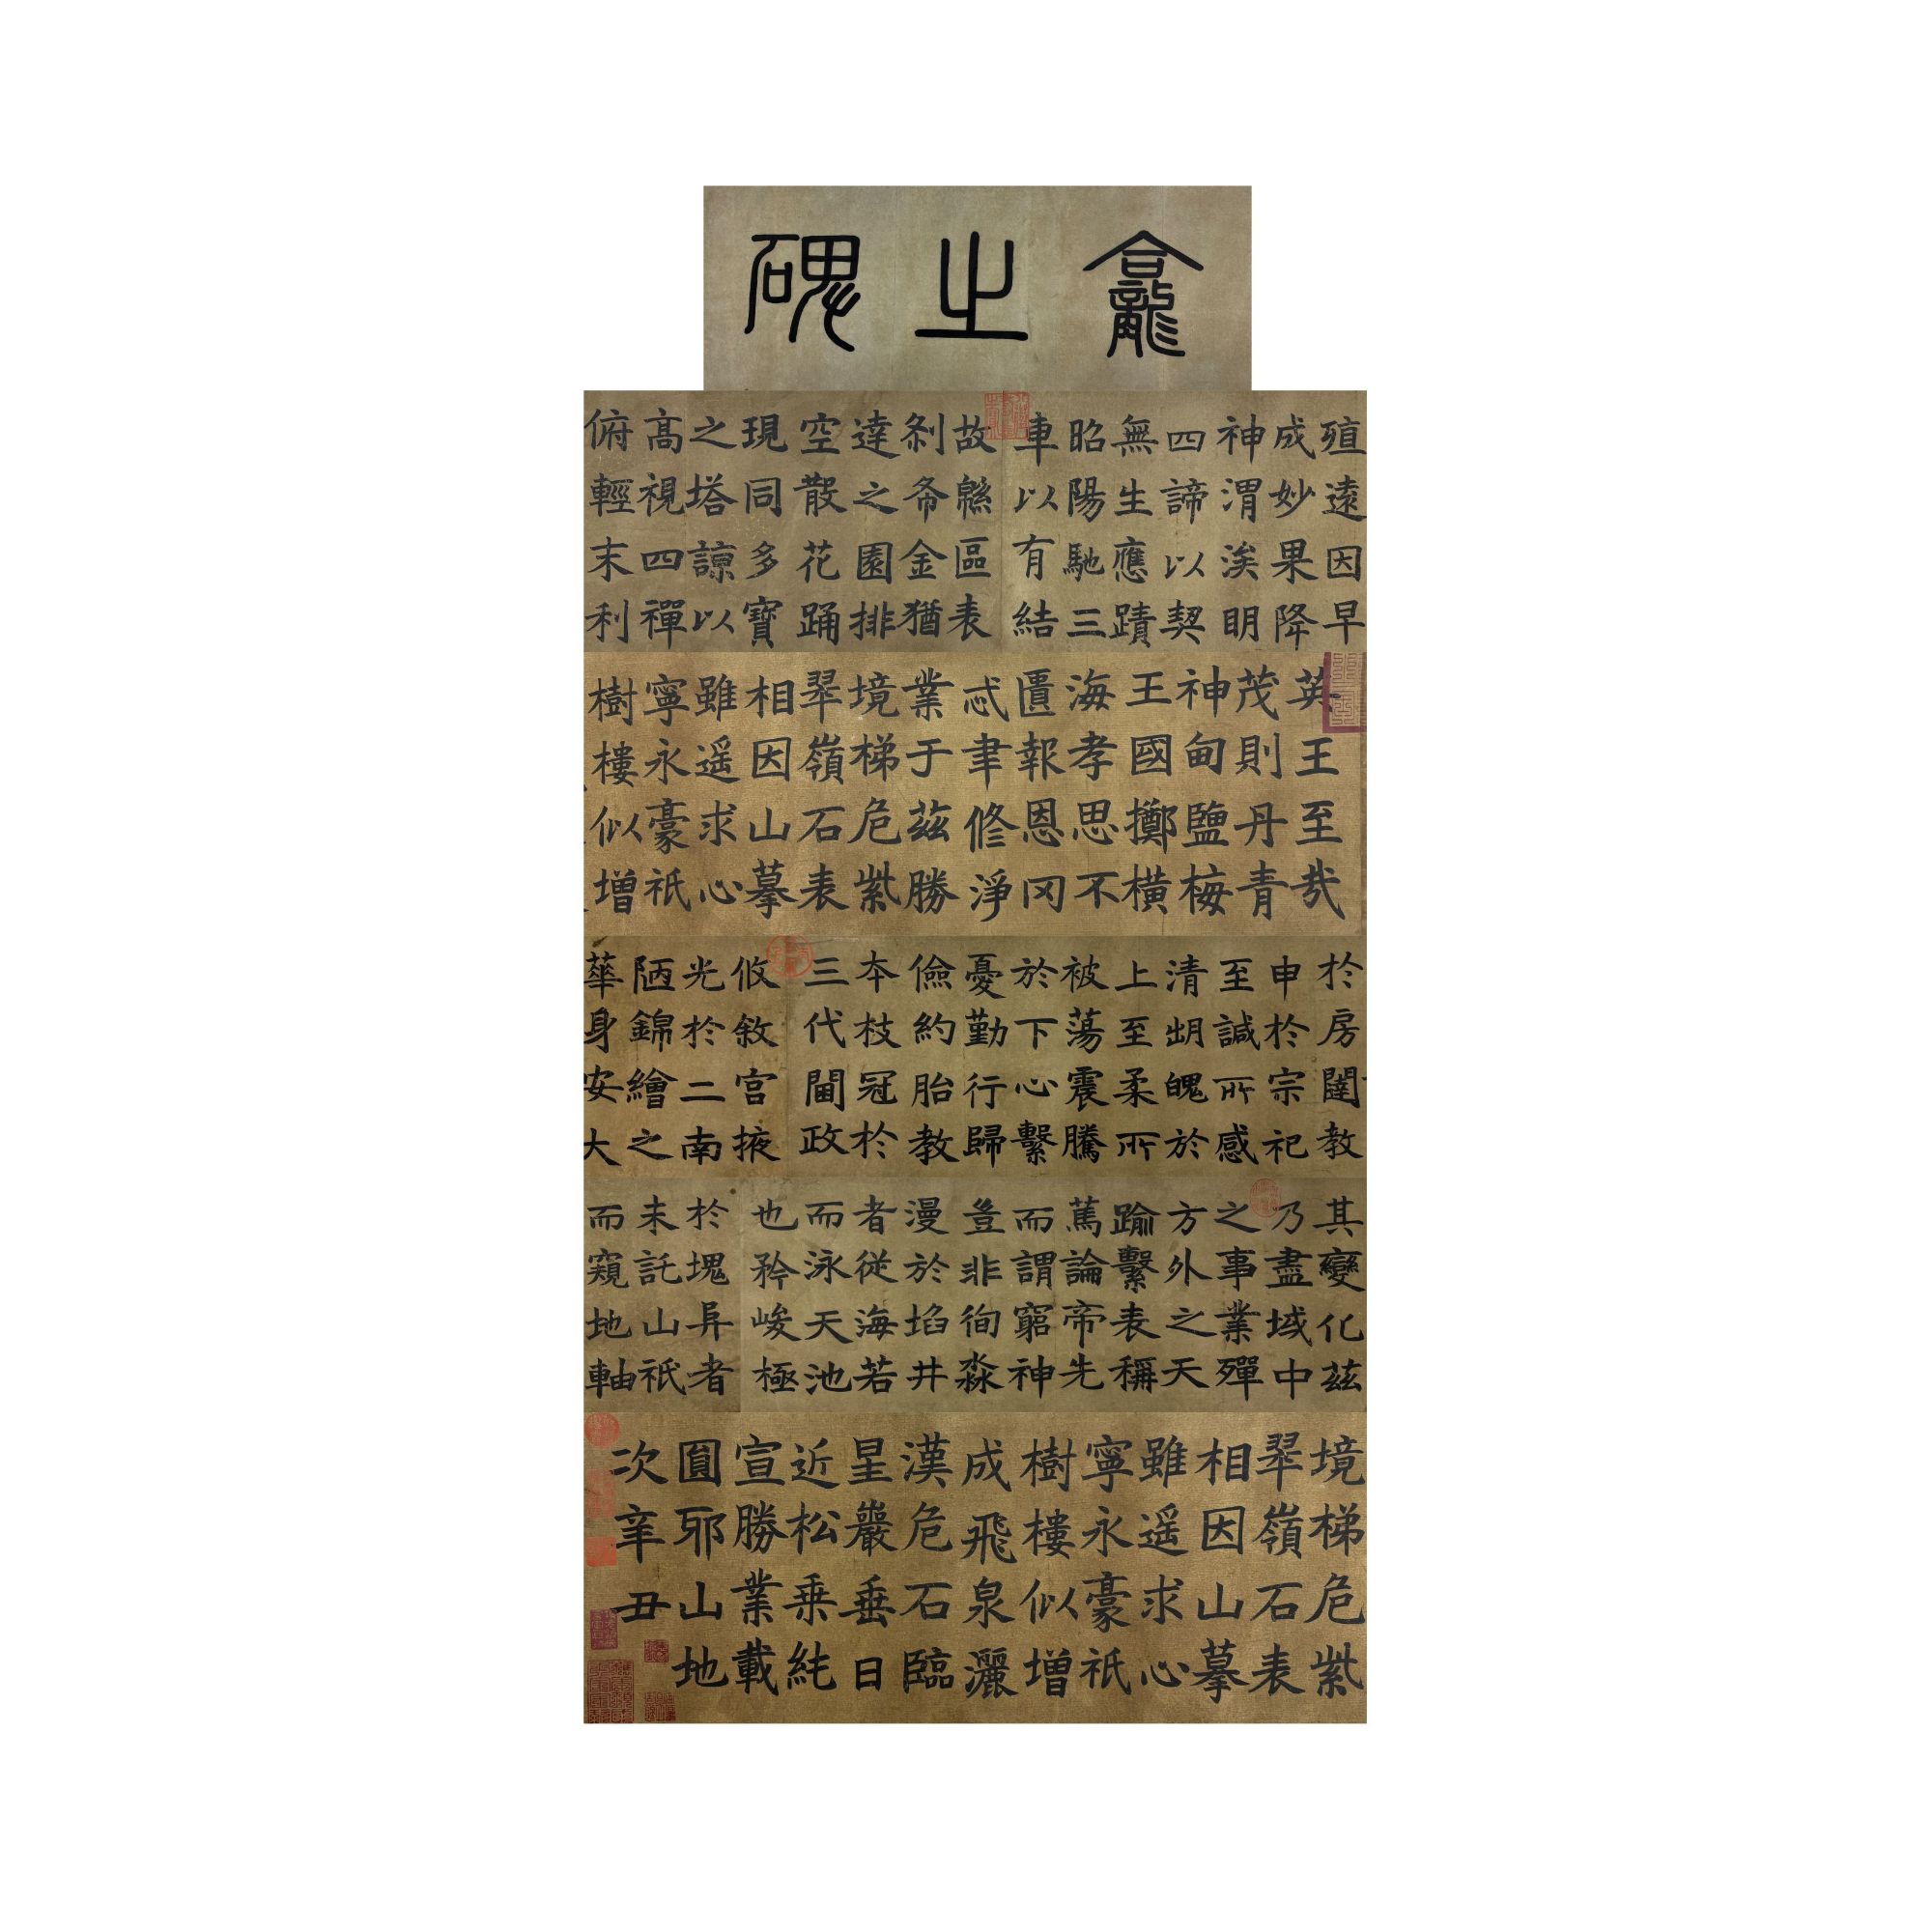 龕之碑
殖遠因早
成妙果降
神渭涘明
四諦以契
無生應蹟
昭陽馳三
車以有結
故緜區表
刹布金猶
達之園排
空散花踊
現同多寶
之塔諒以
高視四禪
俯輕末利
英王至哉
茂則丹青
神甸鹽梅
王國擲橫
海孝思不
匱報恩罔
忒聿修淨
業于茲勝
境梯危紫
翠嶺石表
相因山摹
雖遥求心
寧永豪祇
樹樓似增
於房闥教
申於宗祀
至諴所感
清朏魄於
上至柔所
被蕩震騰
於下心繫
憂勤行歸
儉約胎教
本枝冠於
三代閫政
攸敘宮掖
光於二南
陋錦繪之
華身安大
其變化茲
乃盡域中
之事業殫
方外之天
踰繫表稱
篤論帝先
而謂窮神
豈非徇淼
漫於埳井
者從海若
而泳天池
也矜峻極
於塊阜者
未託山祇
而窺地軸
境梯危紫
翠嶺石表
相因山摹
雖遥求心
寧永豪祇
樹樓似增
成飛泉灑
漢危石臨
星巖垂日
近松乗純
宣勝業載
圓耶山地
次辛丑